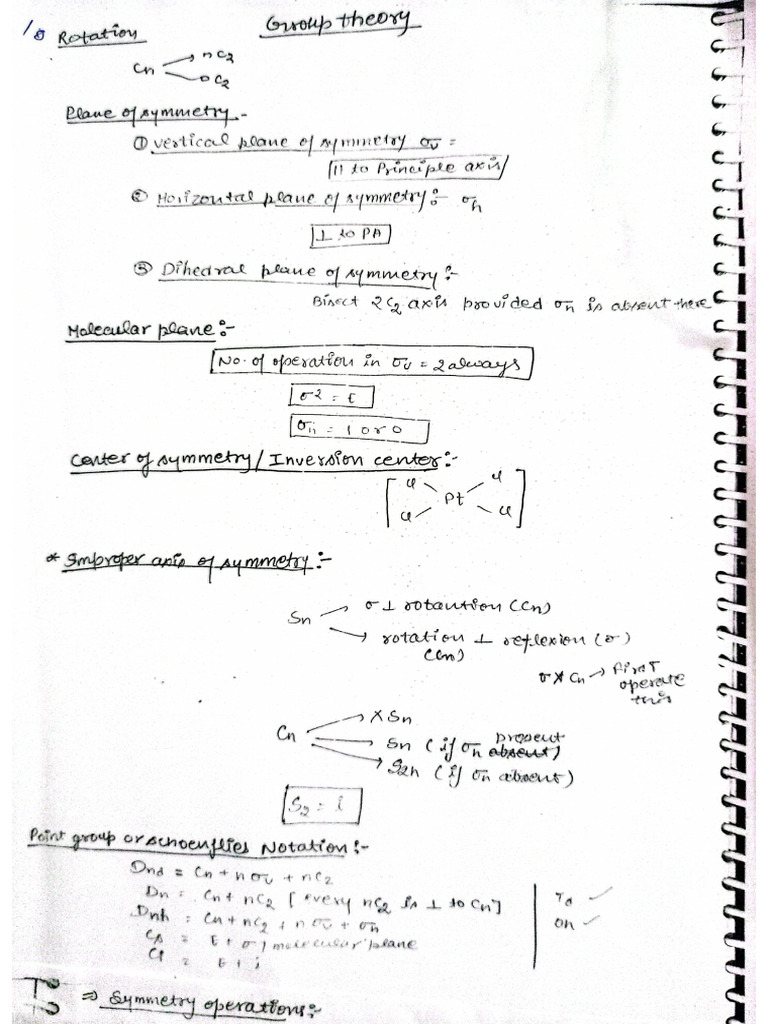 Group theory
1 Rotation
Cn → nC2
→ 0C2
Plane of symmetry :-
① Vertical plane of symmetry σv =
|| to Principle axis
② Horizontal plane of symmetry :- σh
⊥ to PA
③ Dihedral plane of symmetry :-
Bisect 2C2 axis provided σh is absent there
Molecular plane :-
No. of operation in σv = 2 always
σ2 = E
σh = 1 or 0
Center of symmetry / Inversion center :-
Cl Cl
Pt
Cl Cl
* Improper axis of symmetry :-
Sn → σ ⊥ rotaution (Cn)
→ rotation ⊥ reflexion (σ)
(Cn)
σ × Cn → first
operate
this
Cn → × Sn
present
→ Sn (if σh absent)
→ S2n (if σh absent)
S2 = i
Point group or schoenflies Notation :-
Dnd = Cn + nσv + nC2
Dn = Cn + nC2 [every nC2 is ⊥ to Cn]
Td ✓
Dnh = Cn + nC2 + nσv + σh
Oh ✓
Cs = E + σ, molecular plane
Ci = E + i
⇒ Symmetry operations :-